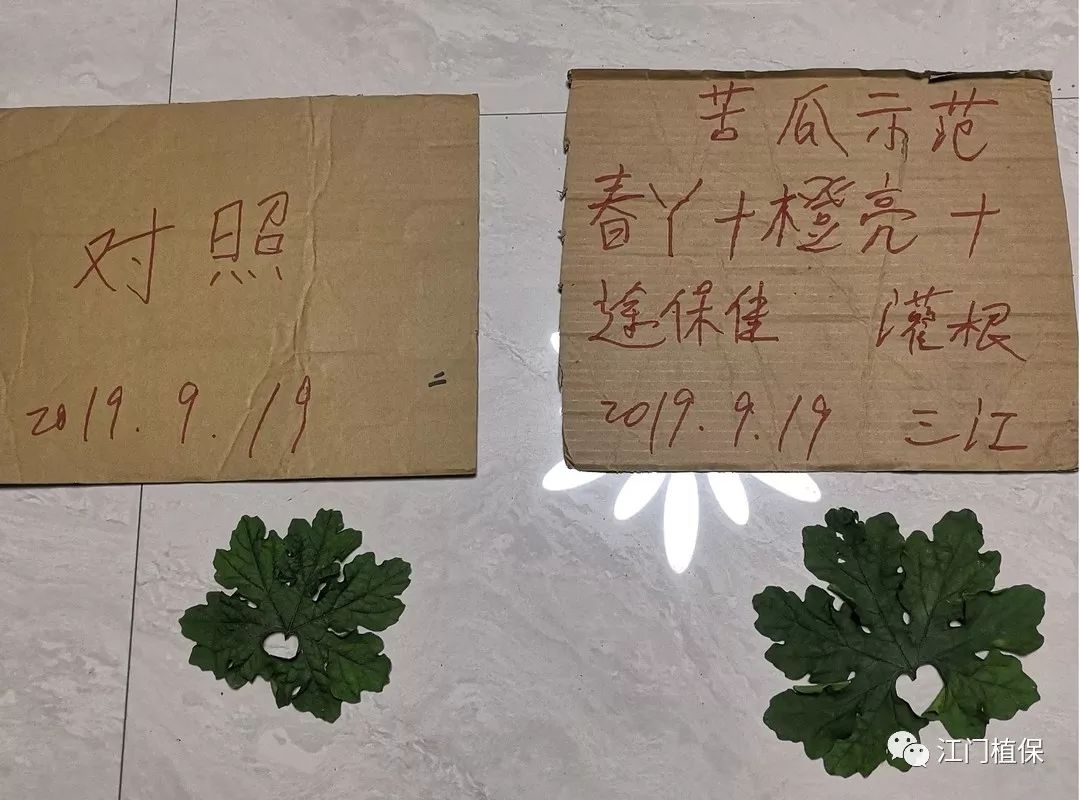 对照
2019.9.19
苦瓜示范
春丫+橙亮+
途保佳 灌根
2019.9.19 三江
江门植保